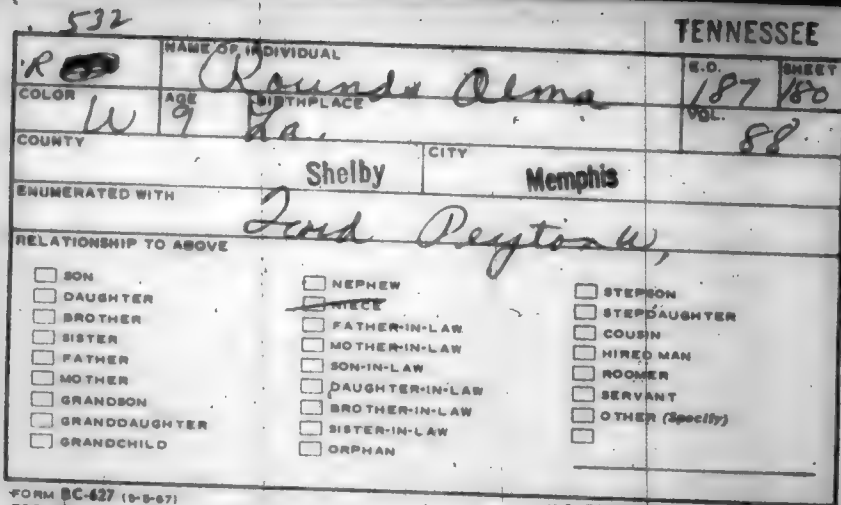 532
TENNESSEE
R
NAME OF INDIVIDUAL
Rounds
E.D.
187
SHEET
180
COLOR
W
AGE
9
BIRTHPLACE
La.
VOL.
88
COUNTY
Shelby
CITY
Memphis
ENUMERATED WITH
Peyton W,
RELATIONSHIP TO ABOVE
SON
DAUGHTER
BROTHER
SISTER
FATHER
MOTHER
GRANDSON
GRANDDAUGHTER
GRANDCHILD
NEPHEW
NIECE
FATHER-IN-LAW
MOTHER-IN-LAW
SON-IN-LAW
DAUGHTER-IN-LAW
BROTHER-IN-LAW
SISTER-IN-LAW
ORPHAN
STEPSON
STEPDAUGHTER
COUSIN
HIRED MAN
ROOMER
SERVANT
OTHER (Specify)
FORM BC-627 (9-5-67)